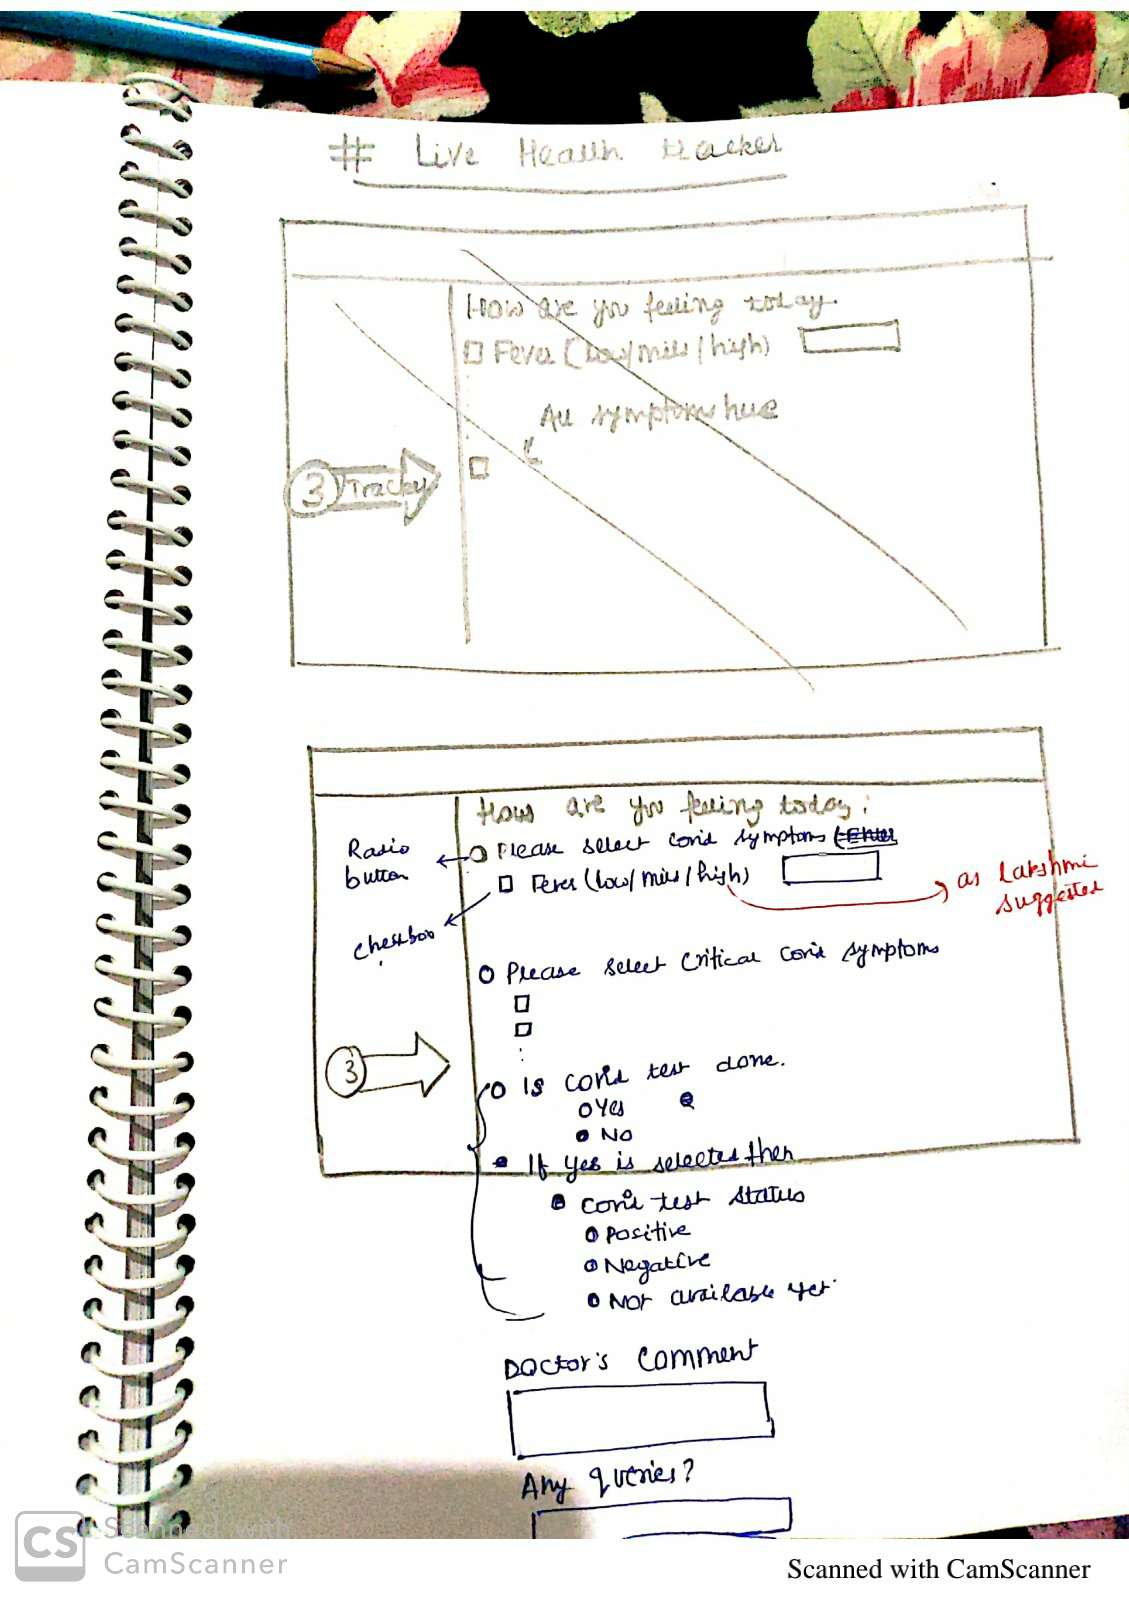 # Live Health tracker
How are you feeling today.
Fever (low/mild/high)
All symptoms here
3
How are you feeling today:
Radio
button
Please select covid symptoms
Fever (low/mild/high)
as Lakshmi
suggested
checkbox
Please select critical covid symptoms
3
Is covid test done.
Yes
No
If yes is selected then
covid test status
Positive
Negative
Not available yet
Doctor's comment
Any queries?
CS
Scanned with
CamScanner
Scanned with CamScanner